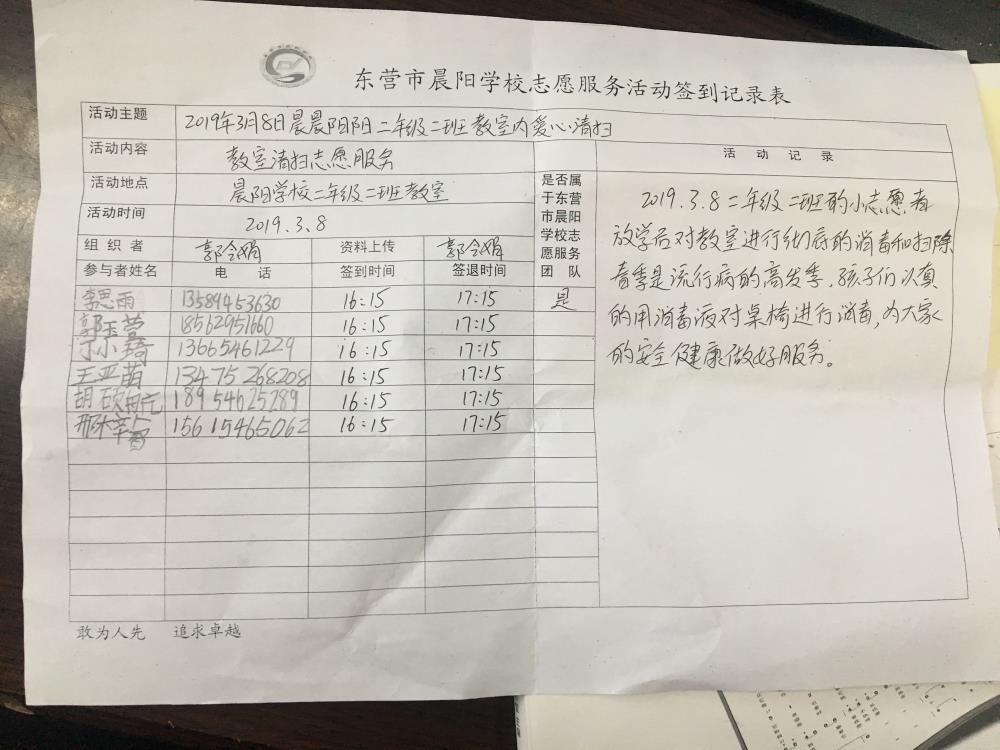 东营市晨阳学校志愿服务活动签到记录表
活动主题 2019年3月8日晨晨阳阳二年级二班教室内爱心清扫
活动内容 教室清扫志愿服务
活动地点 晨阳学校二年级二班教室
活动时间 2019.3.8
组织者 郭令娟 资料上传 郭令娟
参与者姓名 电话 签到时间 签退时间
是否属
于东营
市晨阳
学校志
愿服务
团队
李思雨 13589453630 16:15 17:15 是
郭玉萱 18562951660 16:15 17:15
于小 13665461229 16:15 17:15
王亚萌 13475268208 16:15 17:15
胡硕航 18954625289 16:15 17:15
邢 15615465062 16:15 17:15
活动记录
2019.3.8二年级二班的小志愿者
放学后对教室进行彻底的消毒和扫除
春季是流行病的高发季,孩子们认真
的用消毒液对桌椅进行消毒,为大家
的安全健康做好服务。
敢为人先 追求卓越